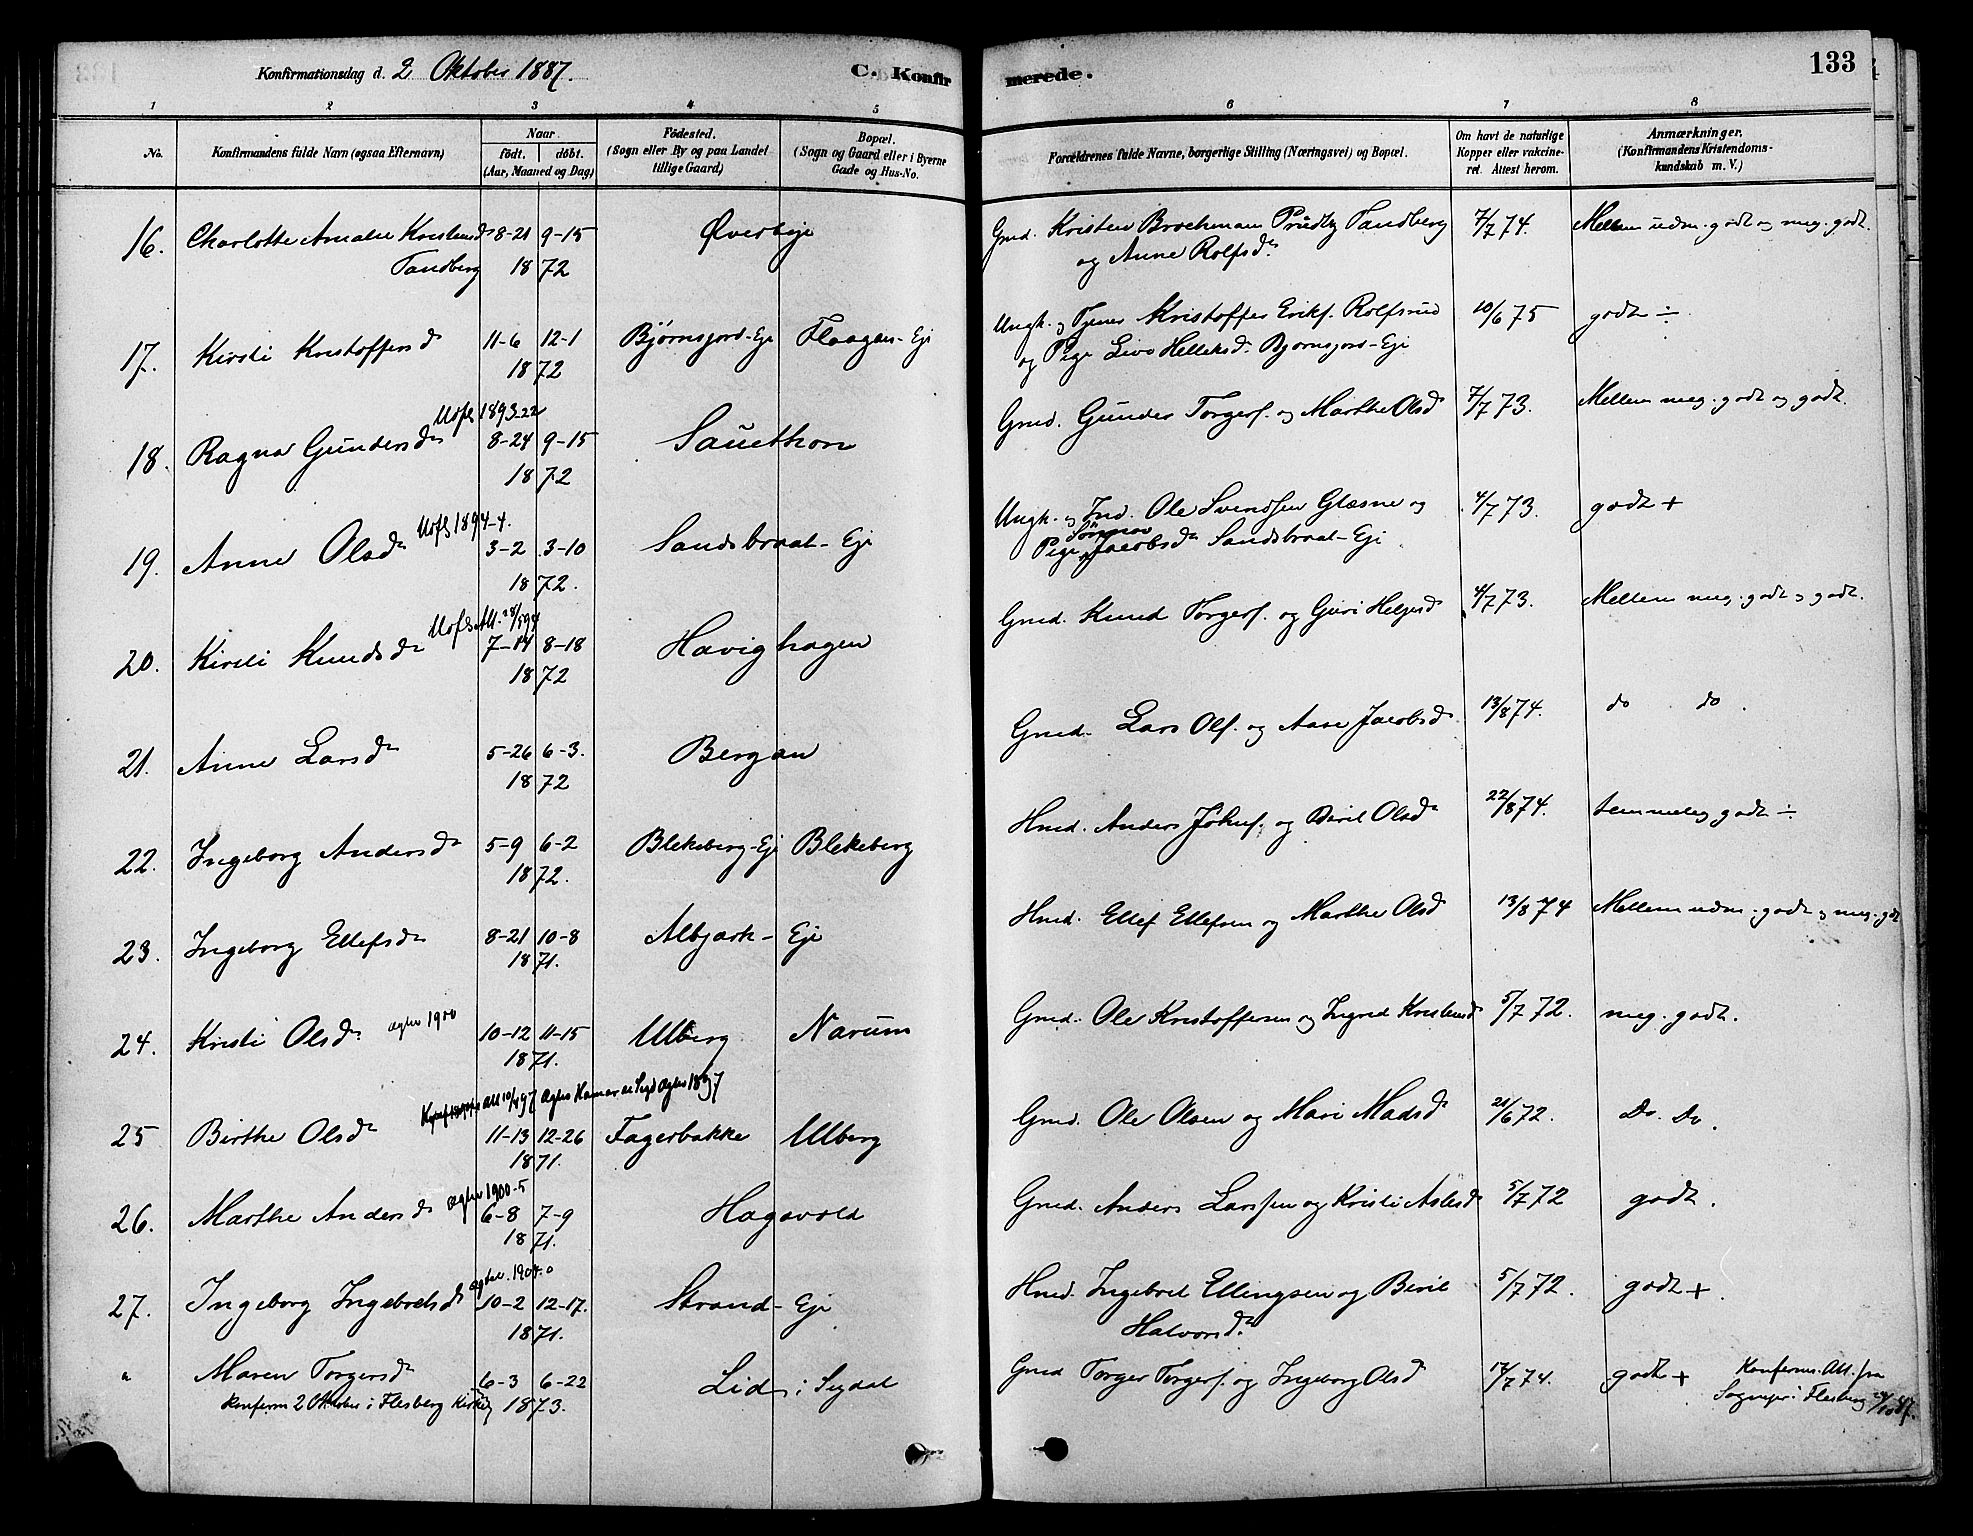 Konfirmationsdag d. 2 Oktober 1887. C. Konfirmerede. 133
1 2 3 4 5 6 7 8
No. Konfirmandens fulde Navn (ogsaa Efternavn) Naar født. døbt. (Aar, Maaned og Dag) Fødested. (Sogn eller By og paa Landet tillige Gaard) Bopæl. (Sogn og Gaard eller i Byerne Gade og Hus-No. Forældrenes fulde Navne, borgerlige Stilling (Næringsvei) og Bopæl. Om havt de naturlige Kopper eller vakcineret. Attest herom. Anmærkninger. (Konfirmandens Kristendomskundskab m. V.)
16. Charlotte Amalie Kristensdr 8-21 9-15 Øverbye Gmd. Kristen Brochmann Prudtz Tandberg 7/7 74. Mellem udm. godt og meg. godt.
Tandberg 1872 og Anne Rolfsdr.
17. Kirsti Kristoffersdr 11-6 12-1 Bjørnsgord-Eje Flaagan-Eje Ungk. og Tjener Kristoffer Erikf. Rolfsrud 10/6 75 godt ÷
1872 og Pige Live Helleksdr Bjørnsgord-Eje
Uofs 1893-22
18. Ragna Gundersdr 8-24 9-15 Sauethon Gmd. Gunder Torgerf. og Marthe Olsdr 7/7 73. Mellem meg. godt og godt.
1872
Uofs 1894-4.
19. Anne Olsdr 3-2 3-10 Sandsbraat-Eje Ungk. og Ind. Ole Svendsen Glæsne og 4/7 73. godt +
1872. Pige Jacobsdr Sandsbraat-Eje
20. Kirsti Knudsdr 7-14 8-18 Havighagen Gmd. Knud Torgerf. og Guri Helgesdr 4/7 73. Mellem meg. godt og godt.
1872
21. Anne Larsdr 5-26 6-3. Bergan Gmd. Lars Olf. og Aase Jacobsdr 13/8 74. do do.
1872
22. Ingeborg Andersdr 5-9 6-2 Blekeberg-Eje Blekeberg Hmd. Anders Johnf. og Beril Olsdr 22/8 74. temmelig godt ÷
1872.
23. Ingeborg Ellefsdr 8-21 10-8 Albjark-Eje Hmd. Ellef Ellefsen og Marthe Olsdr 13/8 74 Mellem udm. godt og meg. gdt
1871.
24. Kristi Olsdr agter 1900 10-12 11-15 Ulberg Narum Gmd. Ole Kristoffersen og Ingrid Kristensdr 5/7 72. meg. godt.
1871.
25 Birthe Olsdr 11-13 12-26 Fagerbakke Ulberg Gmd. Ole Olsen og Mari Madsdr 21/6 72. Do. Do.
1871.
agter 1900-5
26. Marthe Andersdr 6-8 7-9 Hagavold Gmd. Anders Larssen og Kristi Aslesdr 5/7 72 godt.
1871.
27. Ingeborg Ingebretsdr 10-2 12-17. Strand-Eje Hmd. Ingebret Ellingsen og Beril 5/7 72. godt +.
1871. Halvorsdr.
" Maren Torgersdr 6-3 6-22 Lid i Sigdal Gmd Torger Torgerf. og Ingeborg Olsdr 17/7 74. godt + Konferm. Att. fra
konferm 2 Oktober i Flesberg Kirke 1873. Sognepr i Flesberg